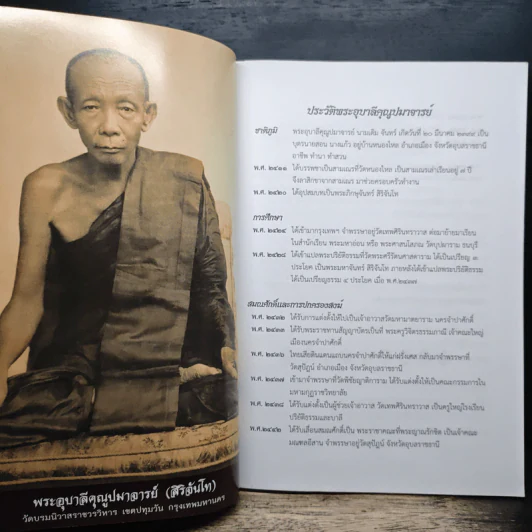 พระอุบาลีคุณูปมาจารย์ (สิริจันโท)
วัดบรมนิวาสราชวรวิหาร เขตปทุมวัน กรุงเทพมหานคร
ประวัติพระอุบาลีคุณูปมาจารย์
ชาติภูมิ พระอุบาลีคุณูปมาจารย์ นามเดิม จันทร์ เกิดวันที่ ๒๐ มีนาคม ๒๓๙๙ เป็น
บุตรนายสอน นางแก้ว อยู่บ้านหนองไหล อำเภอเมือง จังหวัดอุบลราชธานี
อาชีพ ทำนา ทำสวน
พ.ศ. ๒๔๑๑ ได้บรรพชาเป็นสามเณรที่วัดหนองไหล เป็นสามเณรเล่าเรียนอยู่ ๗ ปี
จึงลาสิกขาจากสามเณร มาช่วยครอบครัวทำงาน
พ.ศ. ๒๔๒๐ ได้อุปสมบทเป็นพระภิกษุจันทร์ สิริจันโท
การศึกษา
พ.ศ. ๒๔๒๔ ได้เข้ามากรุงเทพฯ จำพรรษาอยู่วัดเทพศิรินทราวาส ต่อมาย้ายมาเรียน
ในสำนักเรียน พระมหาอ่อน หรือ พระศาสนโสภณ วัดบุปผาราม ธนบุรี
พ.ศ. ๒๔๒๘ ได้เข้าแปลพระปริยัติธรรมที่วัดพระศรีรัตนศาสดาราม ได้เป็นเปรียญ ๓
ประโยค เป็นพระมหาจันทร์ สิริจันโท ภายหลังได้เข้าแปลพระปริยัติธรรม
ได้เป็นเปรียญธรรม ๔ ประโยค เมื่อ พ.ศ.๒๔๓๗
สมณศักดิ์และการปกครองสงฆ์
พ.ศ. ๒๔๓๒ ได้รับการแต่งตั้งให้ไปเป็นเจ้าอาวาสวัดมหามาตยาราม นครจำปาศักดิ์
พ.ศ. ๒๔๓๓ ได้รับพระราชทานสัญญาบัตรเป็นที่ พระครูวิจิตรธรรมภาณี เจ้าคณะใหญ่
เมืองนครจำปาศักดิ์
พ.ศ. ๒๔๓๖ ไทยเสียดินแดนแถบนครจำปาศักดิ์ให้แก่ฝรั่งเศส กลับมาจำพรรษาที่
วัดสุปัฏน์ อำเภอเมือง จังหวัดอุบลราชธานี
พ.ศ. ๒๔๓๗ เข้ามาจำพรรษาที่วัดพิชัยญาติการาม ได้รับแต่งตั้งให้เป็นคณะกรรมการใน
มหามกุฏราชวิทยาลัย
พ.ศ. ๒๔๓๘ ได้รับแต่งตั้งเป็นผู้ช่วยเจ้าอาวาส วัดเทพศิรินทราวาส เป็นครูใหญ่โรงเรียน
ปริยัติธรรมและบาลี
พ.ศ.๒๔๔๒ ได้รับเลื่อนสมณศักดิ์เป็น พระราชาคณะที่พระญาณรักขิต เป็นเจ้าคณะ
มณฑลอีสาน จำพรรษาอยู่วัดสุปัฏน์ จังหวัดอุบลราชธานี